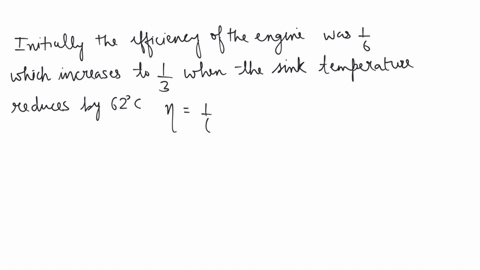 Initially the efficiency of the engine was 1/6
which increases to 1/3 when the sink temperature
reduces by 62°C η = 1/(